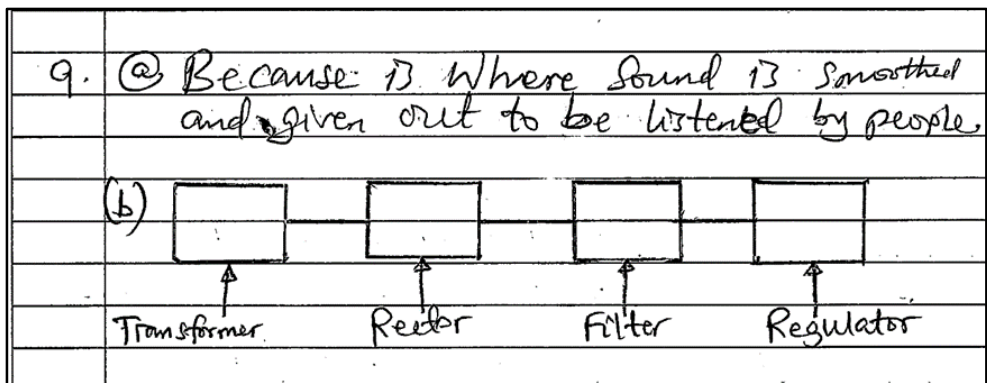 9. (a) Because is where sound is smoothed
and given out to be listened by people
(b)
Transformer Rector Filter Regulator